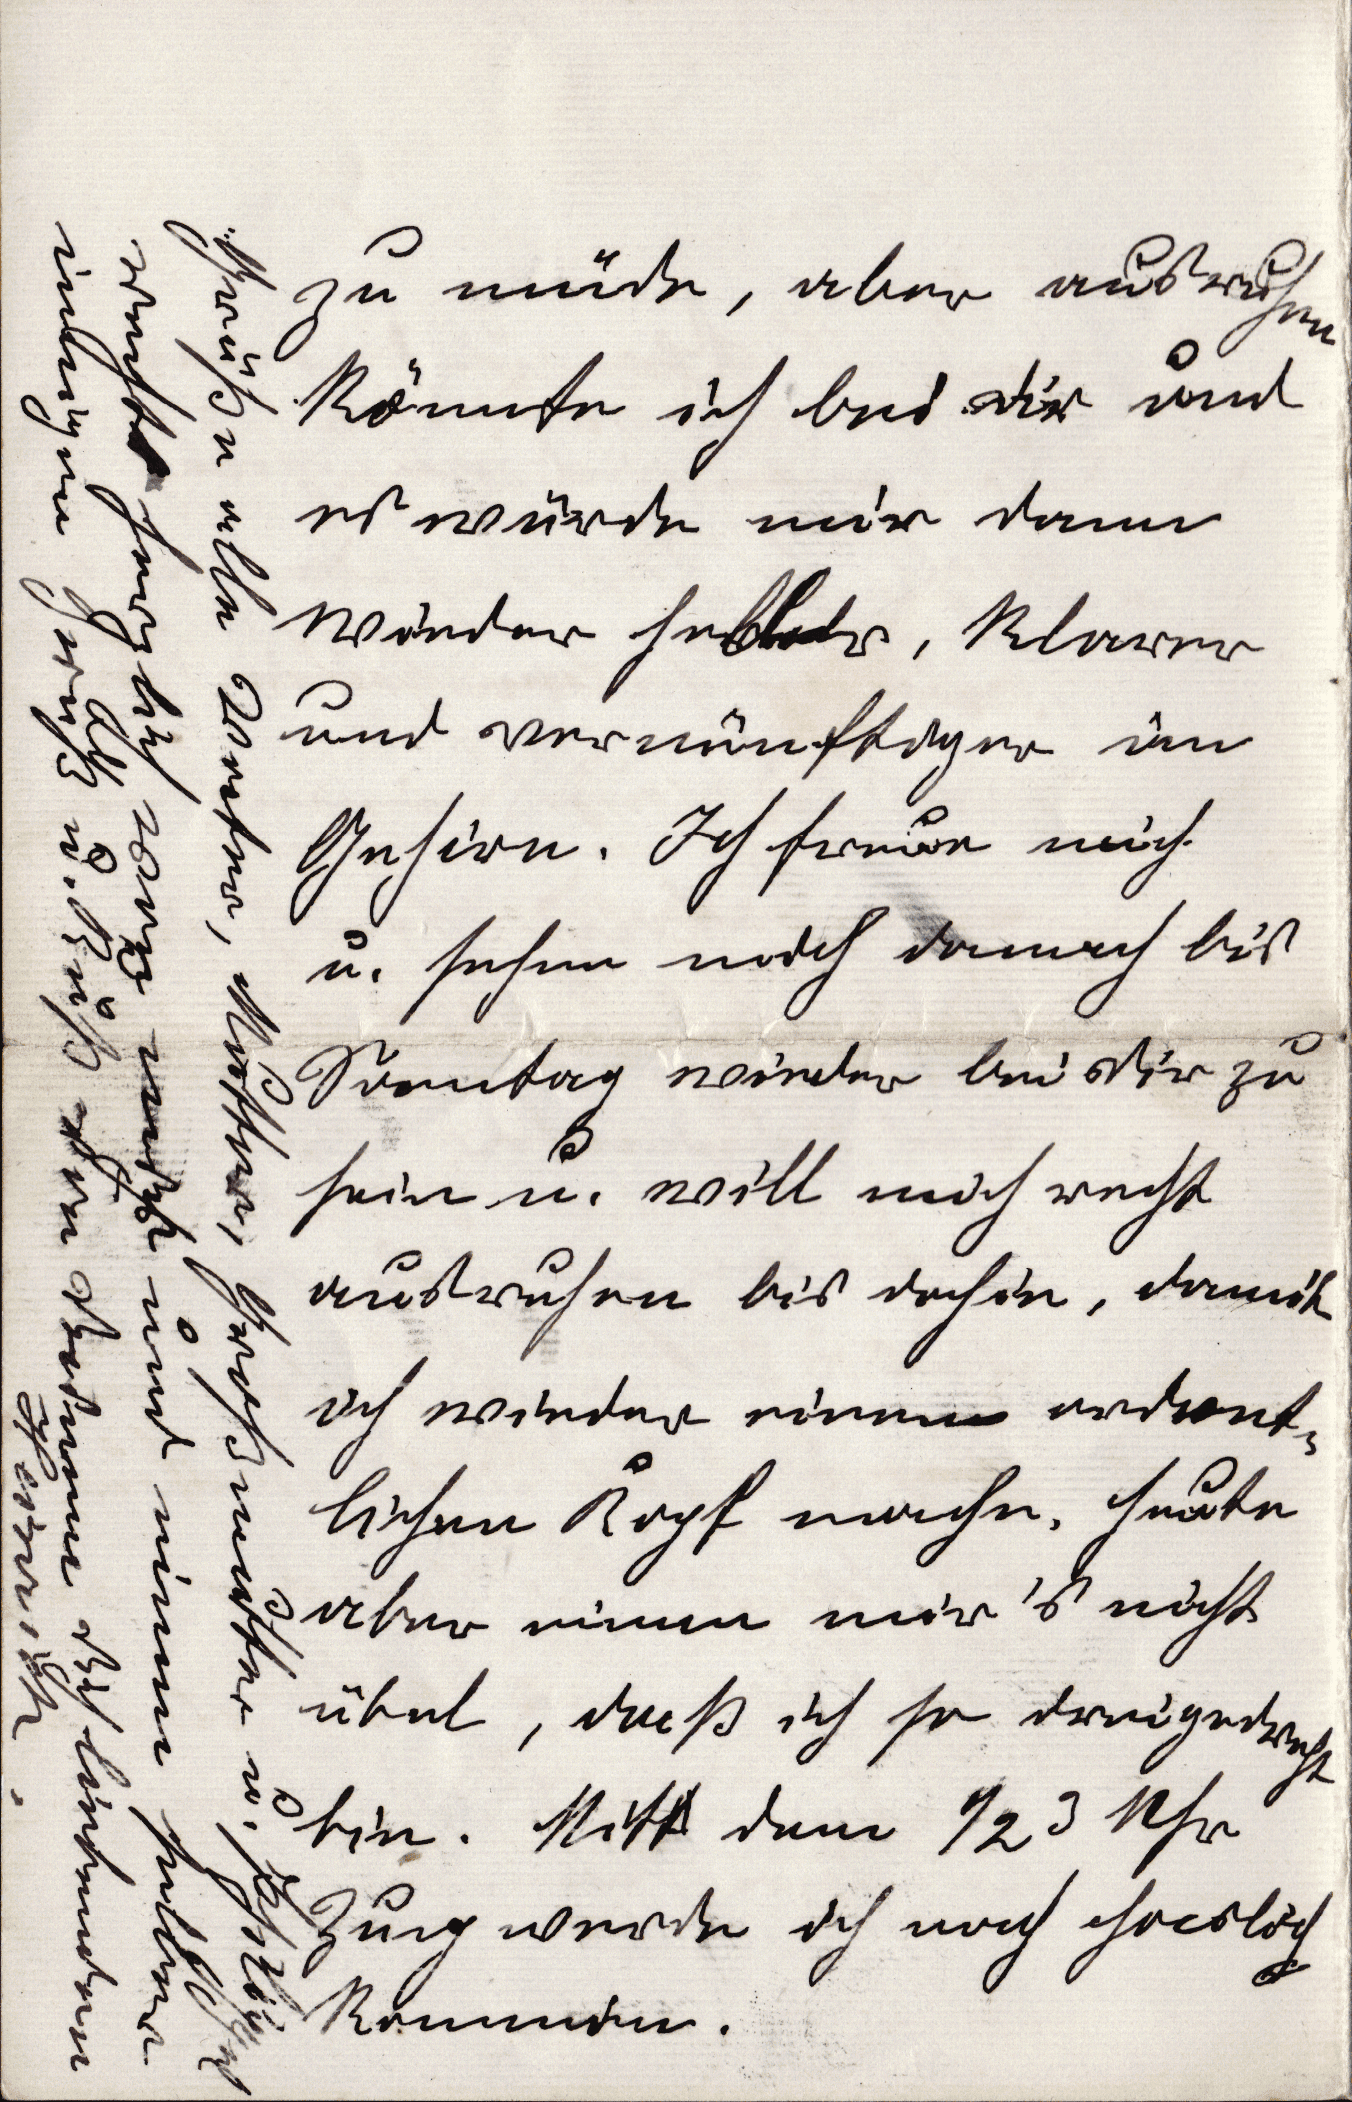 zu müde, aber ausruhen
könnte ich bei dir und
es würde mir dann
wieder heller, klarer
und vernünftiger im
Gehirn. Ich freue mich
u. sehne mich danach bis
Sonntag wieder bei dir zu
sein u. will mich recht
ausruhen bis dahin, damit
ich wieder einen ordent-
lichen Kopf mache. Heute
aber nimm mir's nicht
übel, daß ich so
bin. Mit dem 1/2 3 Uhr
Zug werde ich nach
kommen.
Grüße alle Vater, Mutter, Großmutter u.
recht herzlich von mir und nimm selber
innigen Gruß u. Kuß von Deinem dich liebenden
Heinrich.